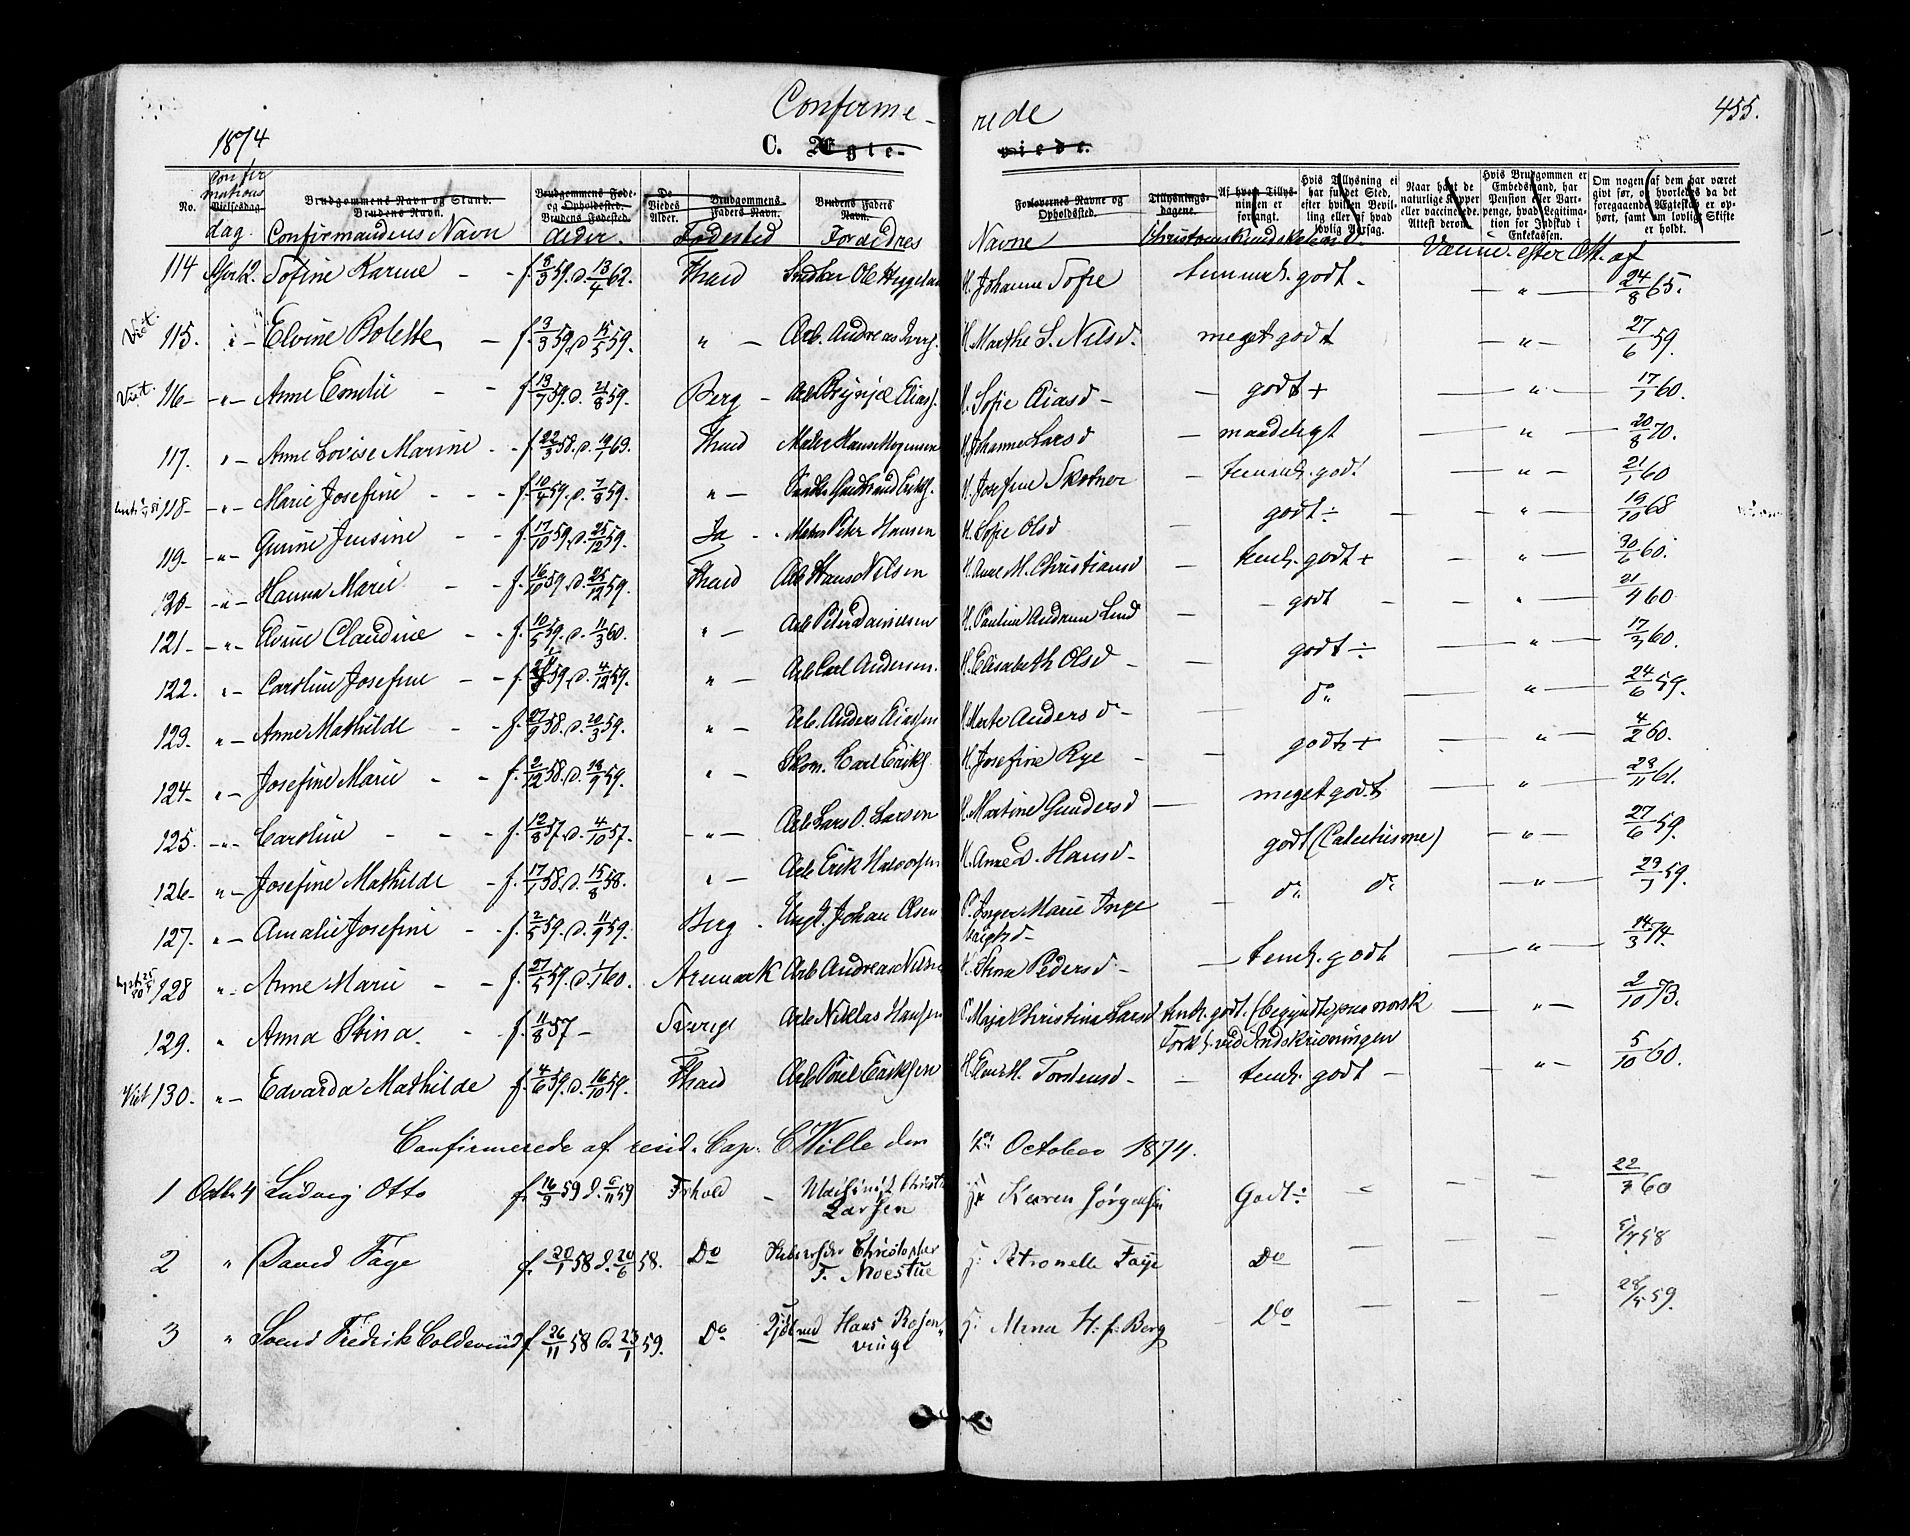 Confirme-
rede
455.
1874
C. Ægte-
viede.
No.
Confir
mations
Vielsesdag.
dag.
Brudgommens Navn og Stand.
Brudens Navn.
Confirmandens Navn
Brudgommens Føde- og Opholdssted.
Brudens Fødested.
Alder.
De Viedes Alder.
Brudgommens Faders Navn.
Fødested
Brudens Faders Navn.
Forældres
Forlovernes Navne og Opholdssted.
Navne
Tillysnings-dagene.
Af hvem Tillysningen er forlangt.
Christendomskundskab
Hvis Tillysning ei har fundet Sted, efter hvilken Bevilling eller af hvad lovlig Aarsag.
Naar havt de naturlige Kopper eller vaccinerede. Attest derom.
Hvis Brudgommen er Embedsmand, har Pension eller Varpenge, hvad Legitimation for Indskud i Enkekassen.
Om nogen af dem har været givt før, og hvorledes da det foregaaende Ægteskab er ophørt, samt om lovlig Skifte er holdt.
Vaccine. efter Att. af
114 Sofine Karine f. 8/3 59. d. 13/4 62. Thrd Ole H. Johanne Sofie temmel. godt 24/8 65.
Viet. 115. Elvine Bolette f. 3/3 59. d. 15/5 59. " Arb. Andreas H. Marthe S. Nilsd. meget godt " 27/6 59.
Viet. 116 " Anne Emelie f. 13/7 59. d. 21/8 59. Berg Arb. Brynjel Elias. H. Sofie Eliasd godt + " 17/1 60.
117. " Anne Lovise Marine f. 22/3 58. d. 19/7 63. Thrd Hans Mogensen H. Johanne Larsd maadeligt " 20/8 70.
118 " Marie Josefine f. 10/4 59. d. 7/8 59. " Gudbrand Eriks. H. Josefine Skolmer temmel. godt " 21/1 60
119 " Gurine Jensine f. 17/10 59. d. 25/12 59. Id Peter Hansen H. Sofie Olsd godt ÷ " 19/10 68
120 " Hanna Marie f. 16/10 59. d. 25/12 59. Thrd Arb Hans Nilsen H. Anne M. Christiansd teml. godt + " 30/6 60.
121 " Elvine Claudine f. 10/5 59. d. 11/3 60. " Arb Peter Danielsen H. Pauline Andrine Lund godt " 21/4 60
122. " Caroline Josefine 59. d. 4/12 59. " Arb Carl Andersen. H. Elisabeth Olsd godt ÷ " 17/3 60.
123. " Anne Mathilde f. 27/9 58. d. 20/3 59. " Arb. Anders H. Marte Andersd do " 24/6 59.
124. " Josefine Marie f. 2/12 58. d. 18/9 59. " Skom. Carl Eriks. H. Josefine Rye godt + " 4/2 60.
125. " Caroline f. 12/8 57. d. 4/10 57. " Arb Lars O. Larsen H. Martine Gundersd meget godt " 23/11 61.
126 " Josefine Mathilde f. 17/1 58. d. 15/8 58. " Arb Erik Halvorsen H. Anne D. Hansd godt (Catechisme) " 27/6 59.
127. " Amalie Josefine f. 2/5 59. d. 11/9 59. Berg Ungk. Johan Olsen P. Inger Marie Inge
brigtsd do do " 23/1 59.
128 " Anne Marie f. 27/5 59. d. 1/1 60. Aremark Arb Andreas Nilsen H. Stina Pedersd teml. godt " 14/3 74.
129. " Anna Stina. f. 11/8 57 Sverige Arb Niklas Hansen P. Maja Christina Larsd teml. godt. (begyndte paa norsk
Forkl. ved Indskrivningen " 2/10 73.
Viet 130. " Edvarda Mathilde f. 4/6 59. d. 16/10 59. Thrd Arb Poul Eriksen H. M. Torstensd teml. godt " 5/10 60.
Confirmerede af resid. Cap. C Wille den 4de October 1874.
1 Octbr 4 Ludvig Otto f. 16/9 59 d. 6/11 59 Frhald Christ
Larsen Hr Karen Jørgensen Godt ÷ 22/7 60
2 " David Faye f. 20/1 58 d. 20/6 58. Do Christopher
T. Moestue H. Petronelle Faye Do
3 " Svend Fredrik Coldevind f. 26/11 58 d. 23/1 59. Do Hans Rosen-
vinge H. Mina H. f. Berg Do 28/5 59.